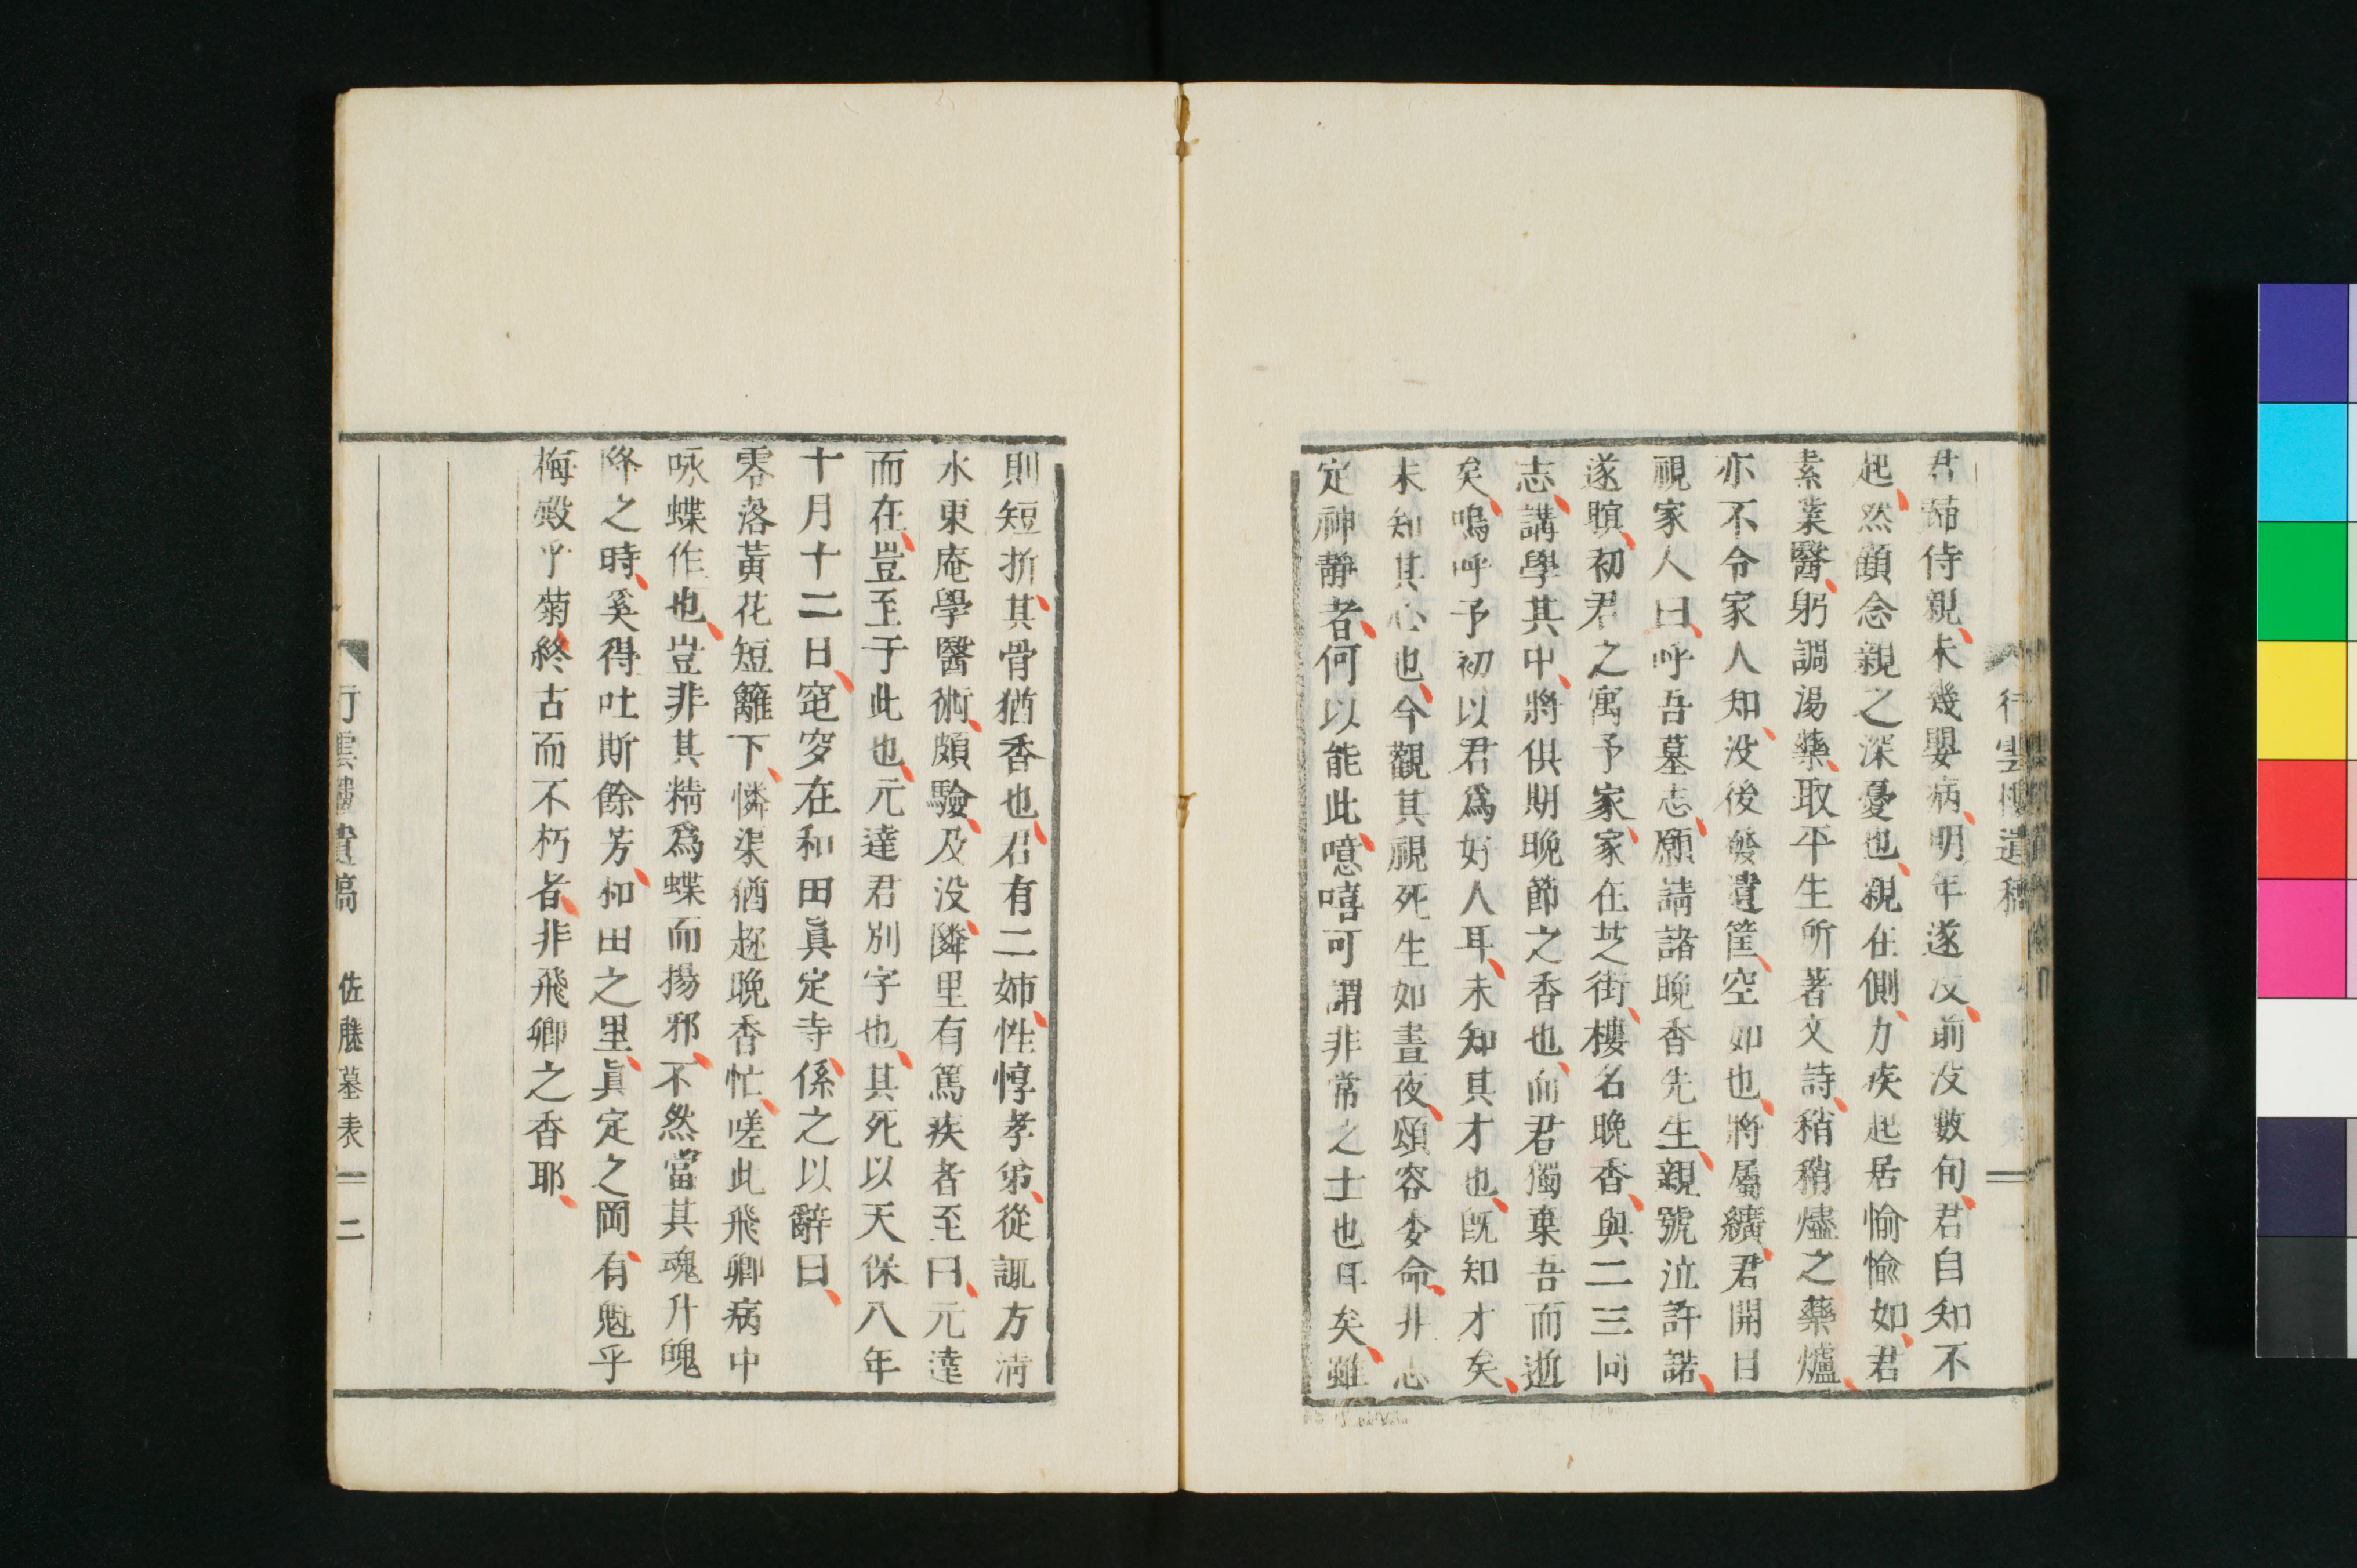 行雲樓遺稿
君歸侍親、未幾嬰病、明年遂沒、前沒數旬、君自知不
起、然顧念親之深憂也、親在側、力疾起居愉愉如、君
素業醫、躬調湯藥、取平生所著文詩、稍稍燼之藥爐、
亦不令家人知、沒後發遺筐、空如也、將屬纊、君開目
視家人曰、呼吾墓志、願請諸晚香先生、親號泣許諾、
遂瞑、初君之寓予家、家在芝街、樓名晚香、與二三同
志、講學其中、將俱期晚節之香也、而君獨棄吾而逝
矣、嗚呼予初以君爲好人耳、未知其才也、既知才矣、
未知其心也、今觀其視死生如晝夜、頌容委命、非志
定神靜者、何以能此、噫嘻可謂非常之士也耳矣、雖
則短折、其骨猶香也、君有二姉、性惇孝弟、從諷方淸
水東庵學醫術、頗驗、及沒、隣里有篤疾者至曰、元達
而在、豈至于此也、元達君別字也、其死以天保八年
十月十二日、窀穸在和田眞定寺、係之以辭曰、
零落黃花短籬下、憐渠猶趁晚香忙、嗟此飛卿病中
咏蝶作也、豈非其精爲蝶而揚邪、不然當其魂升魄
降之時、奚得吐斯餘芳、和田之里、眞定之岡、有魁乎
梅殿乎菊、終古而不朽者、非飛卿之香耶、
行雲樓遺稿 佐藤墓表 二